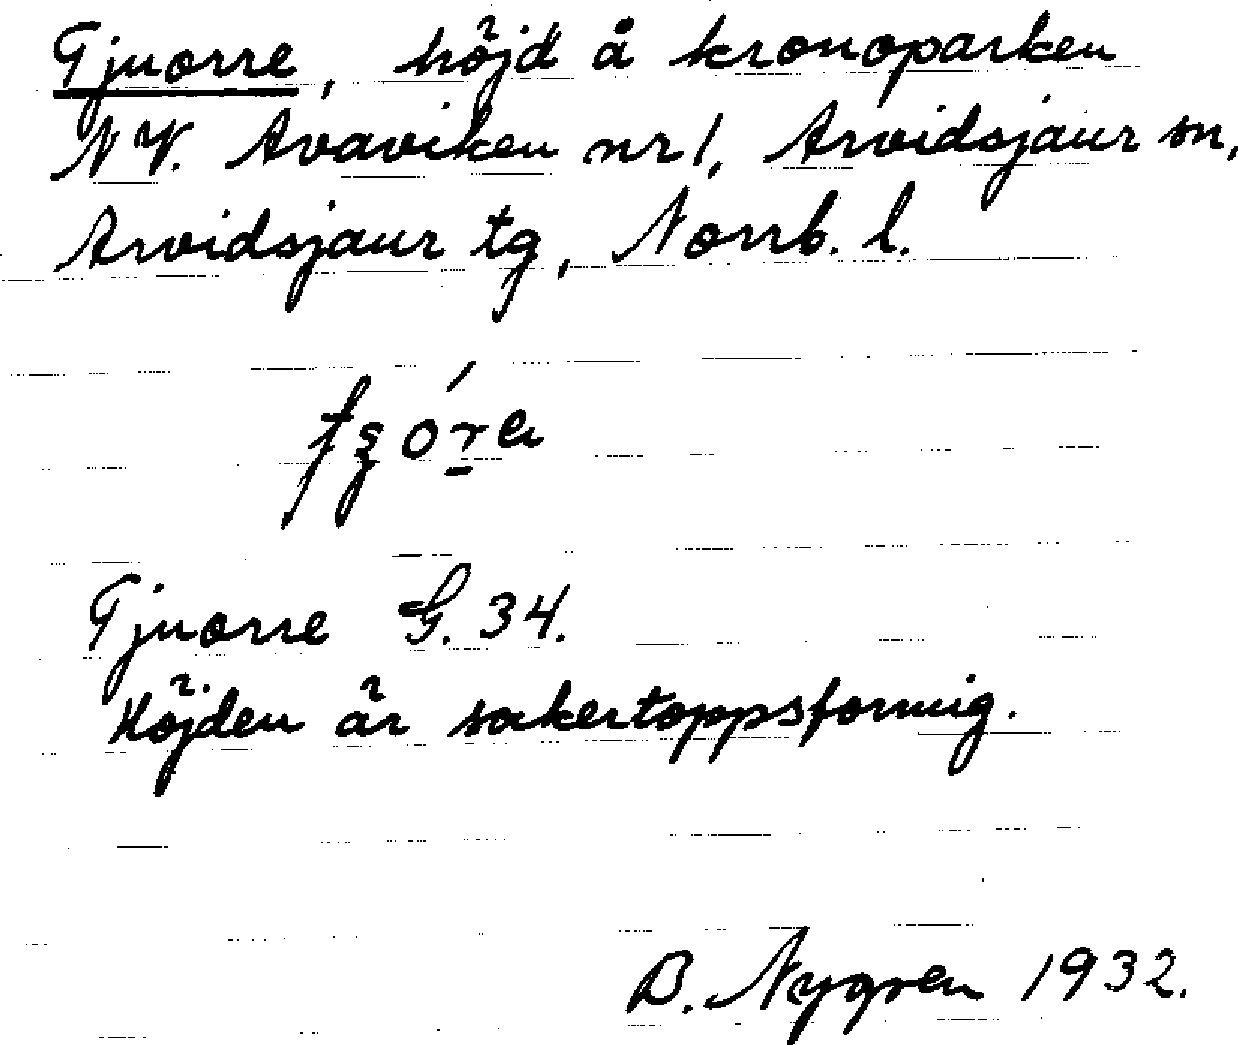 Tjuorre, höjd å kronoparken
NV. Avaviken nr 1, Arvidsjaur sn,
Arvidsjaur tg, Norrb. l.
Tjuorre G. 34.
Höjden är sockertoppsformig.
B. Nygren 1932.